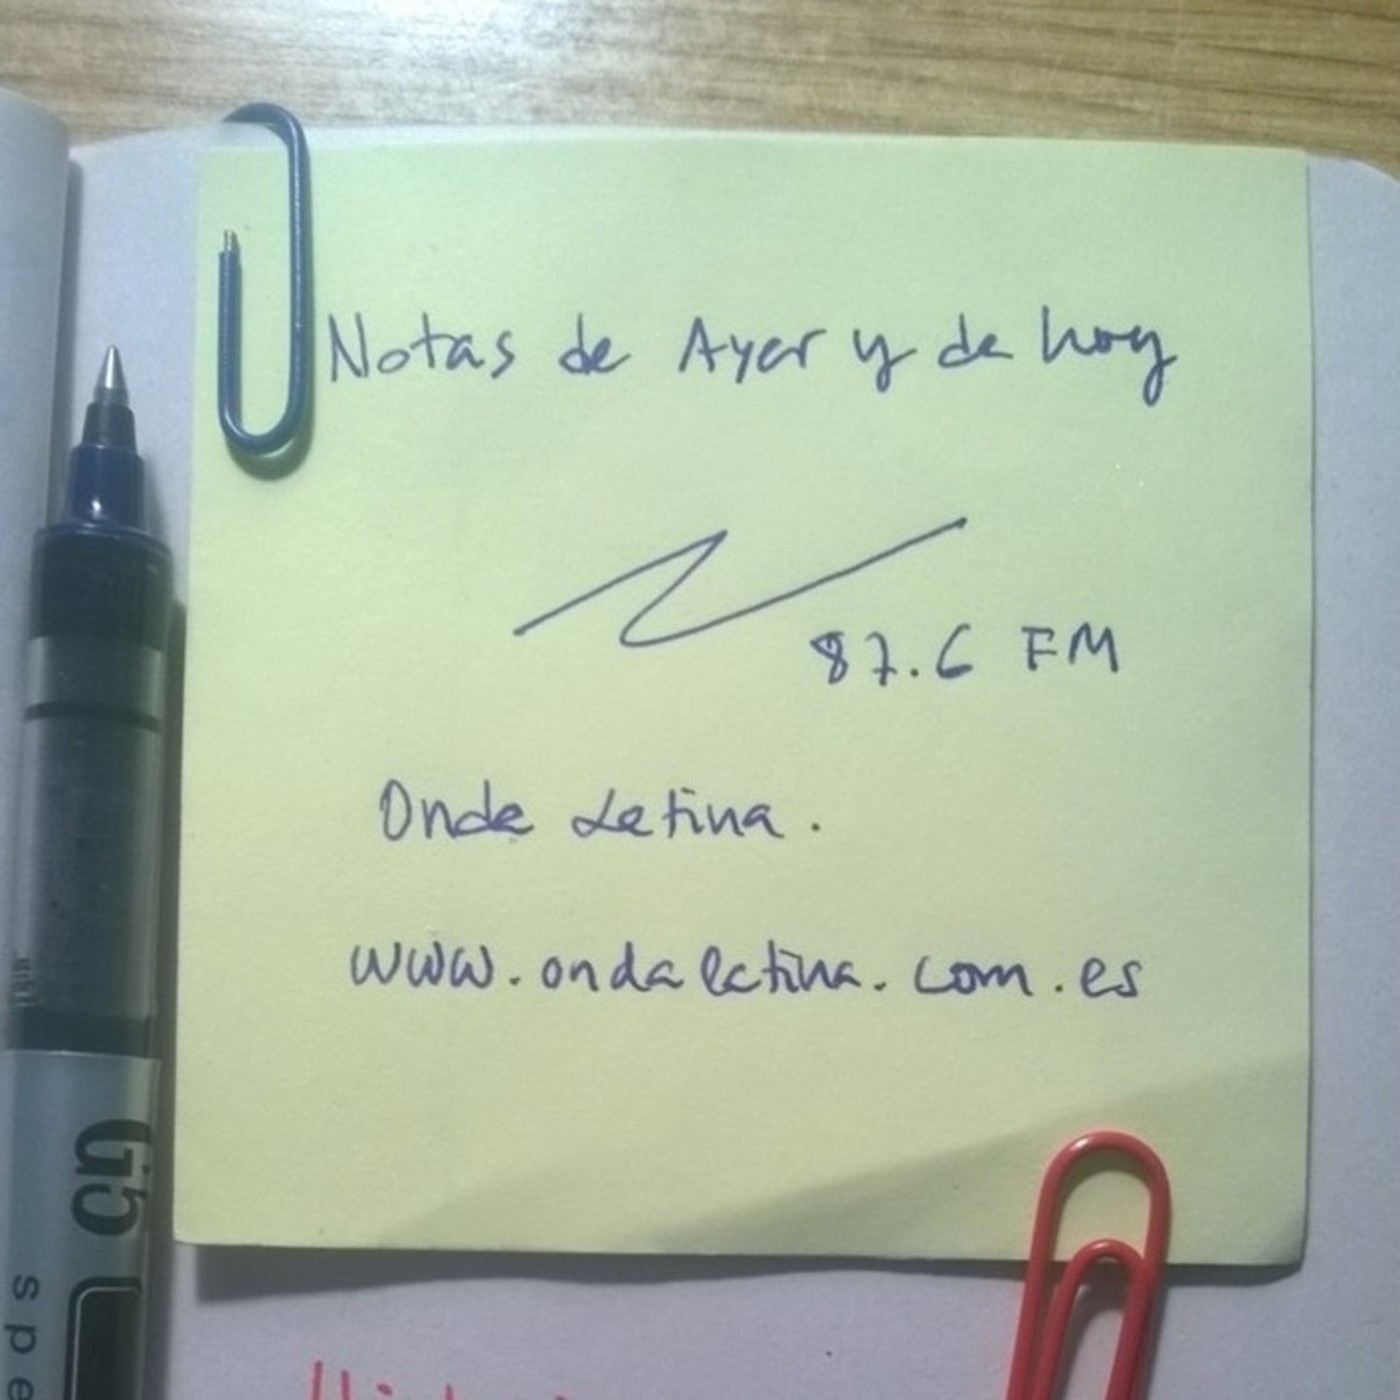 Notas de Ayer y de hoy
87.6 FM
Onda Latina.
www.ondalatina.com.es
G5
spe